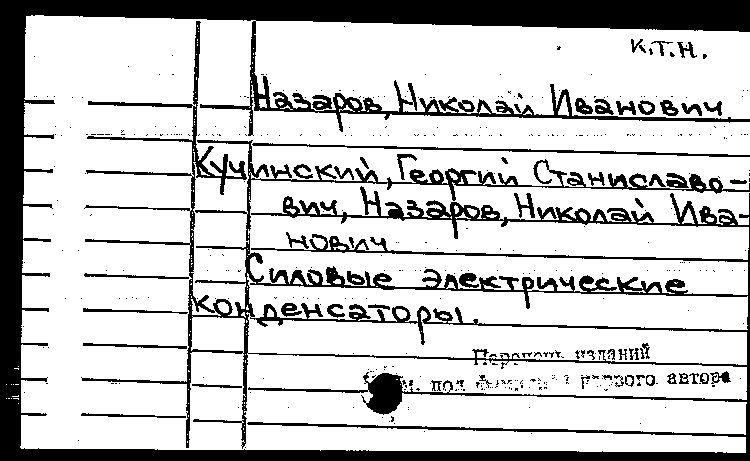 к.т.н.
Назаров, Николай Иванович.
Кучинский, Георгий Станиславо-
вич, Назаров, Николай Ива-
нович.
Силовые электрические
конденсаторы.
Перечень изданий
см. под фамилией первого автора